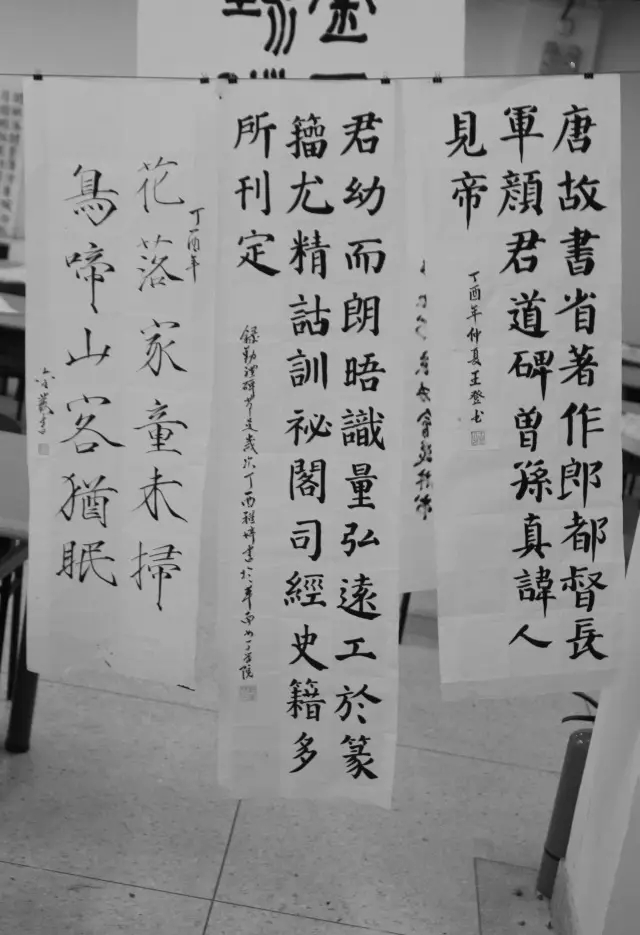 唐故書省著作郎都督長
軍顏君道碑曾孫真諱人
見帝
丁酉年仲夏王登书
君幼而朗晤識量弘遠工於篆
籀尤精詁訓祕閣司經史籍多
所刊定
錄勤禮碑節選歲次丁酉雅婷書於華南女子學院
丁酉年
花落家童未掃
鳥啼山客猶眠